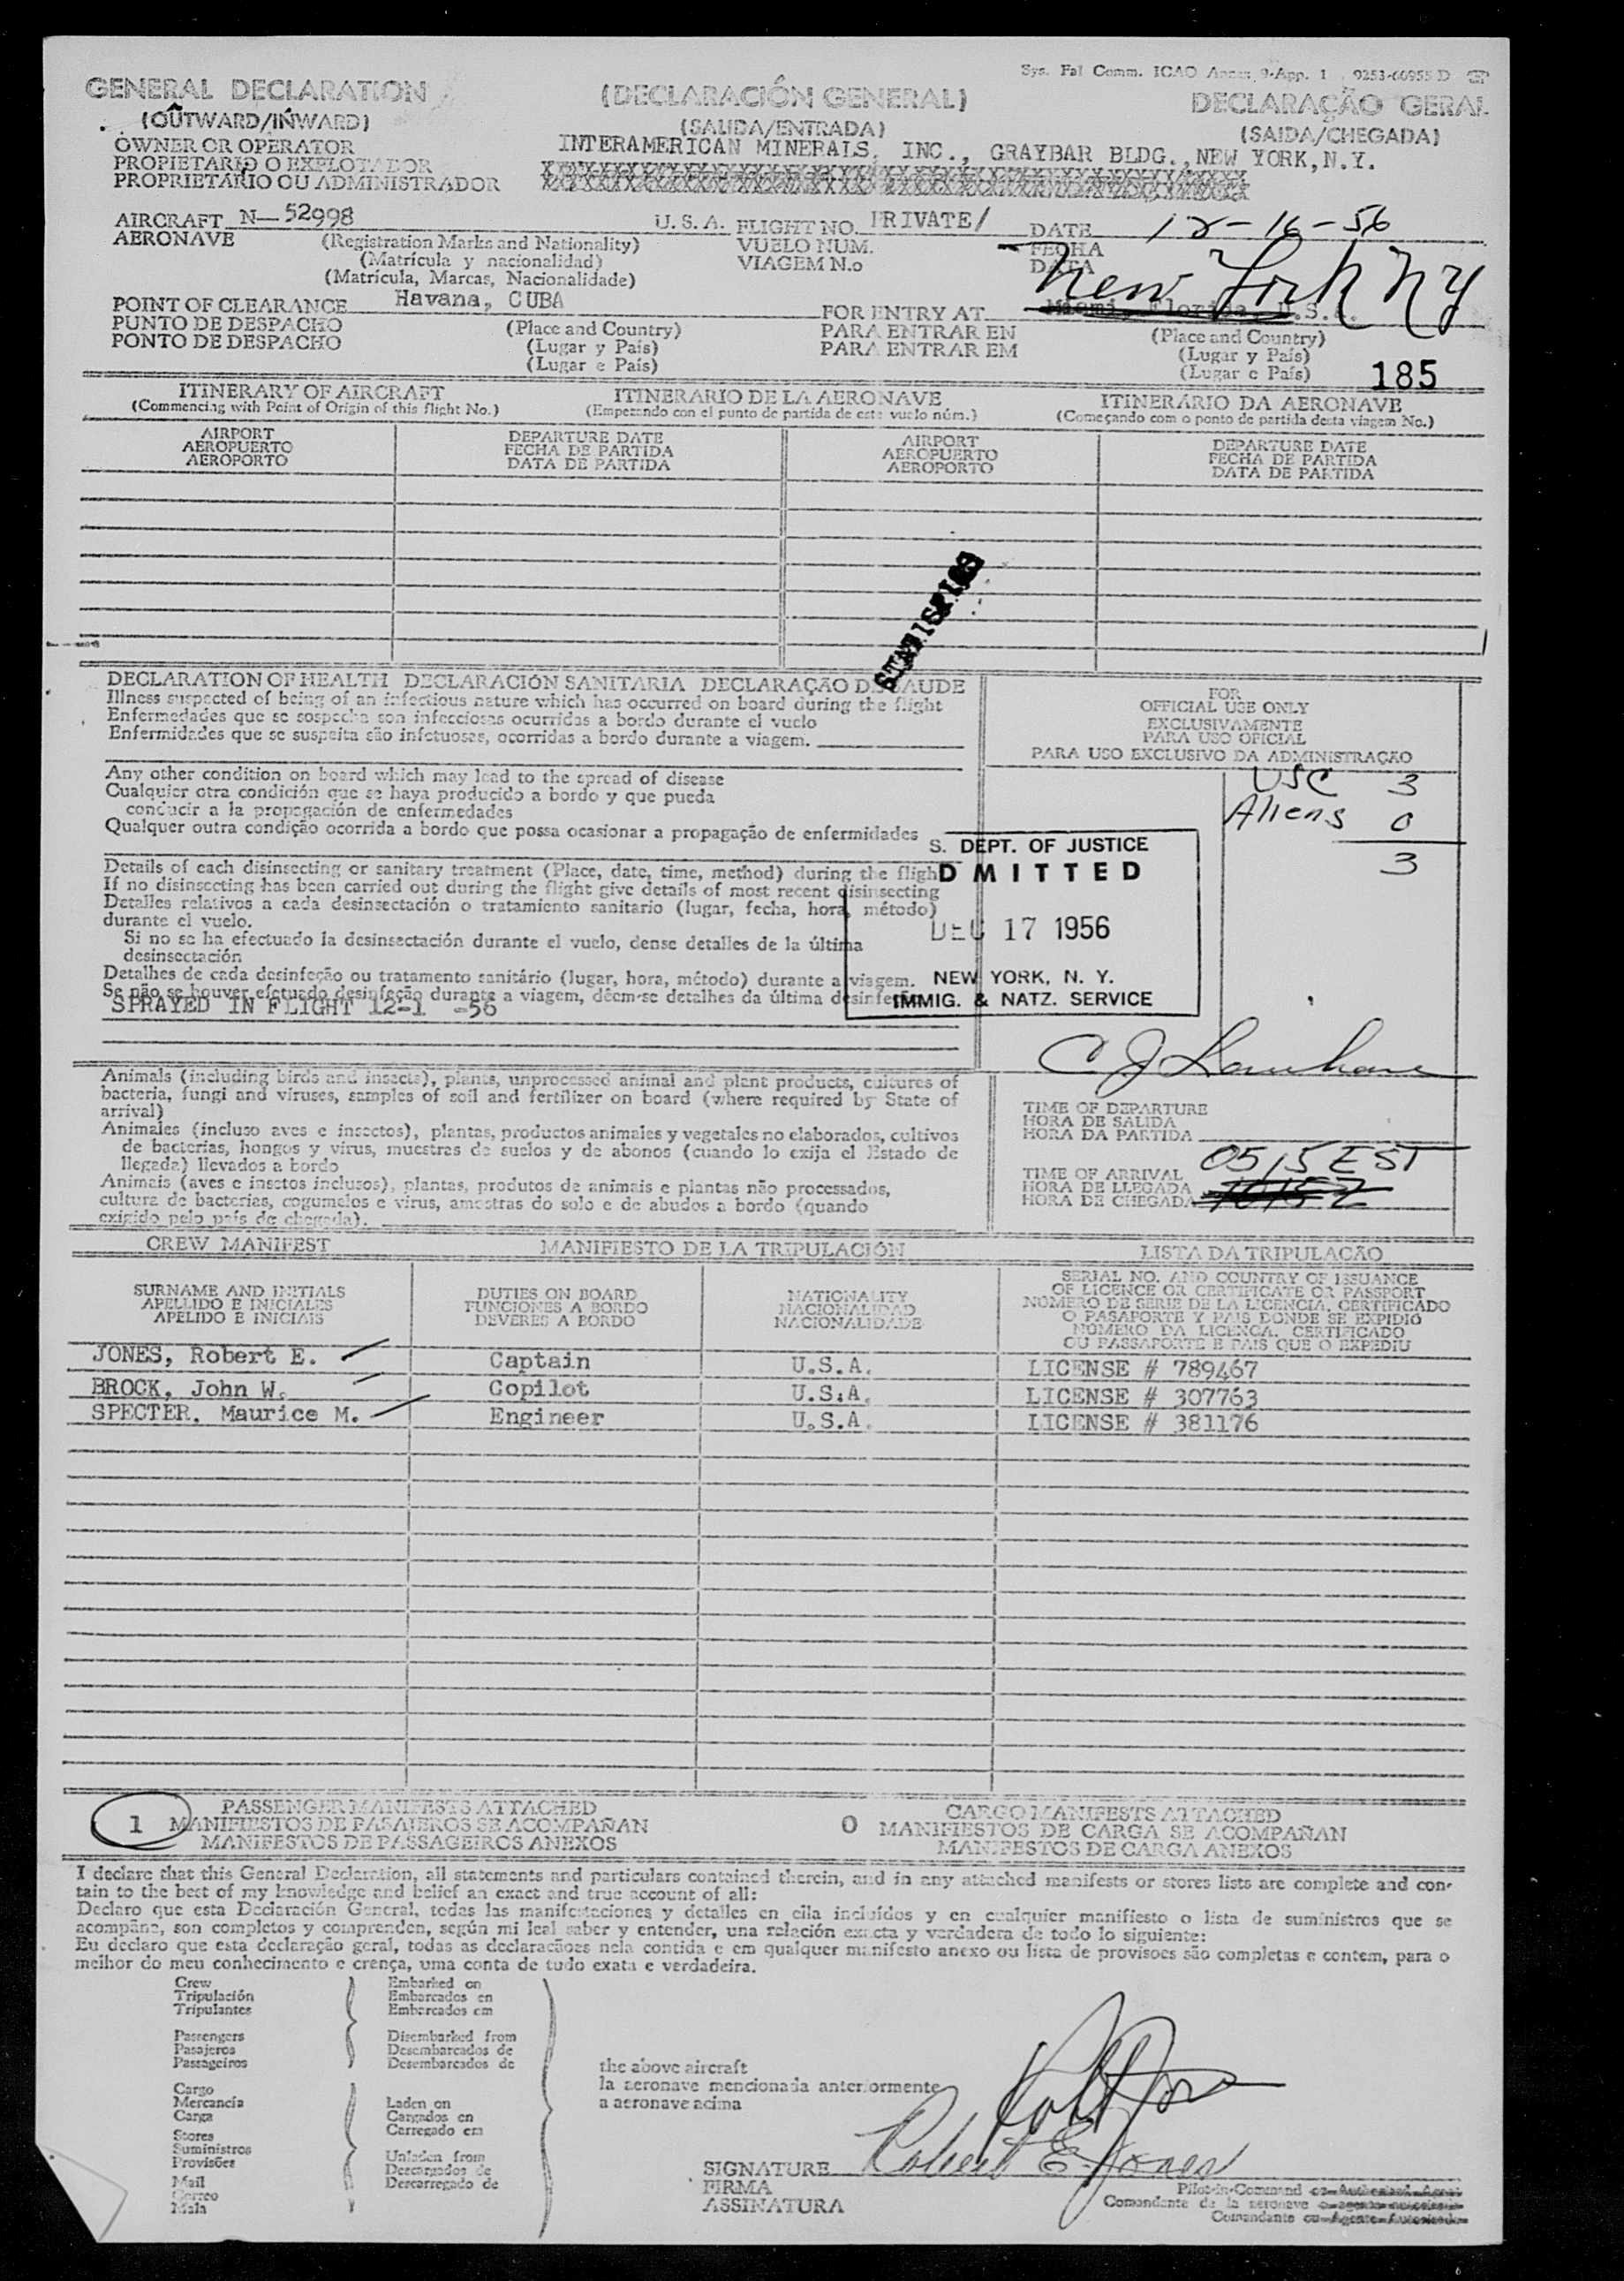 Sys. Fal Comm. ICAO Annex 9-App. 1 9253-60955 D
GENERAL DECLARATION (DECLARACIÓN GENERAL) DECLARAÇÃO GERAL
(OUTWARD/INWARD) (SALIDA/ENTRADA) (SAIDA/CHEGADA)
OWNER OR OPERATOR INTERAMERICAN MINERALS, INC., GRAYBAR BLDG., NEW YORK, N.Y.
PROPIETARIO O EXPLOTADOR
PROPRIETÁRIO OU ADMINISTRADOR
AIRCRAFT N-52998 U.S.A. FLIGHT NO. PRIVATE/ DATE 12-16-56
AERONAVE (Registration Marks and Nationality) VUELO NUM. FECHA
(Matrícula y nacionalidad) VIAGEM N.o DATA
(Matrícula, Marcas, Nacionalidade)
New York NY
POINT OF CLEARANCE Havana, CUBA FOR ENTRY AT Miami, Florida, U.S.A.
PUNTO DE DESPACHO (Place and Country) PARA ENTRAR EN (Place and Country)
PONTO DE DESPACHO (Lugar y País) PARA ENTRAR EM (Lugar y País)
(Lugar e País) (Lugar e País) 185
ITINERARY OF AIRCRAFT ITINERARIO DE LA AERONAVE ITINERÁRIO DA AERONAVE
(Commencing with Point of Origin of this flight No.) (Empezando con el punto de partida de este vuelo núm.) (Começando com o ponto de partida desta viagem No.)
AIRPORT DEPARTURE DATE AIRPORT DEPARTURE DATE
AEROPUERTO FECHA DE PARTIDA AEROPUERTO FECHA DE PARTIDA
AEROPORTO DATA DE PARTIDA AEROPORTO DATA DE PARTIDA
DECLARATION OF HEALTH DECLARACIÓN SANITARIA DECLARAÇÃO DE SAUDE
Illness suspected of being of an infectious nature which has occurred on board during the flight
Enfermedades que se sospecha son infecciosas ocurridas a bordo durante el vuelo
Enfermidades que se suspeita são infetuosas, ocorridas a bordo durante a viagem.
FOR
OFFICIAL USE ONLY
EXCLUSIVAMENTE
PARA USO OFICIAL
PARA USO EXCLUSIVO DA ADMINISTRAÇÃO
USC 3
Aliens 0
3
Any other condition on board which may lead to the spread of disease
Cualquier otra condición que se haya producido a bordo y que pueda
conducir a la propagación de enfermedades
Qualquer outra condição ocorrida a bordo que possa ocasionar a propagação de enfermidades
S. DEPT. OF JUSTICE
DMITTED
DEC 17 1956
NEW YORK, N. Y.
IMMIG. & NATZ. SERVICE
Details of each disinsecting or sanitary treatment (Place, date, time, method) during the flight
If no disinsecting has been carried out during the flight give details of most recent disinsecting
Detalles relativos a cada desinsectación o tratamiento sanitario (lugar, fecha, hora, método)
durante el vuelo.
Si no se ha efectuado la desinsectación durante el vuelo, dense detalles de la última
desinsectación
Detalhes de cada desinfeção ou tratamento sanitário (lugar, hora, método) durante a viagem.
Se não se houver efetuado desinfeção durante a viagem, dêem-se detalhes da última desinfeção
SPRAYED IN FLIGHT 12-1 -56
Animals (including birds and insects), plants, unprocessed animal and plant products, cultures of
bacteria, fungi and viruses, samples of soil and fertilizer on board (where required by State of
arrival)
Animales (incluso aves e insectos), plantas, productos animales y vegetales no elaborados, cultivos
de bacterias, hongos y virus, muestras de suelos y de abonos (cuando lo exija el Estado de
llegada) llevados a bordo
Animais (aves e insetos inclusos), plantas, produtos de animais e plantas não processados,
cultura de bacterias, cogumelos e virus, amostras do solo e de abudos a bordo (quando
exigido pelo país de chegada).
TIME OF DEPARTURE
HORA DE SALIDA
HORA DA PARTIDA
TIME OF ARRIVAL 0515 EST
HORA DE LLEGADA
HORA DE CHEGADA 1015Z
CREW MANIFEST MANIFIESTO DE LA TRIPULACIÓN LISTA DA TRIPULAÇÃO
SURNAME AND INITIALS DUTIES ON BOARD NATIONALITY SERIAL NO. AND COUNTRY OF ISSUANCE
APELLIDO E INICIALES FUNCIONES A BORDO NACIONALIDAD OF LICENCE OR CERTIFICATE OR PASSPORT
APELIDO E INICIAIS DEVERES A BORDO NACIONALIDADE NÚMERO DE SERIE DE LA LICENCIA, CERTIFICADO
O PASAPORTE Y PAIS DONDE SE EXPIDIÓ
NÚMERO DA LICENCA, CERTIFICADO
OU PASSAPORTE E PAIS QUE O EXPEDIU
JONES, Robert E. Captain U.S.A. LICENSE # 789467
BROCK, John W. Copilot U.S.A. LICENSE # 307763
SPECTER, Maurice M. Engineer U.S.A. LICENSE # 381176
PASSENGER MANIFESTS ATTACHED CARGO MANIFESTS ATTACHED
1 MANIFIESTOS DE PASAJEROS SE ACOMPAÑAN 0 MANIFIESTOS DE CARGA SE ACOMPAÑAN
MANIFESTOS DE PASSAGEIROS ANEXOS MANIFESTOS DE CARGA ANEXOS
I declare that this General Declaration, all statements and particulars contained therein, and in any attached manifests or stores lists are complete and con-
tain to the best of my knowledge and belief an exact and true account of all:
Declaro que esta Declaración General, todas las manifestaciones y detalles en ella incluídos y en cualquier manifiesto o lista de suministros que se
acompañe, son completos y comprenden, según mi leal saber y entender, una relación exacta y verdadera de todo lo siguiente:
Eu declaro que esta declaração geral, todas as declarações nela contida e em qualquer manifesto anexo ou lista de provisoes são completas e contem, para o
melhor do meu conhecimento e crença, uma conta de tudo exata e verdadeira.
Crew Embarked on
Tripulación Embarcados en
Tripulantes Embarcados em
Passengers Disembarked from
Pasajeros Desembarcados de
Passageiros Desembarcados de
the above aircraft
la aeronave mencionada anteriormente
a aeronave acima
Cargo
Mercancía Laden on
Carga Cargados en
Stores Carregado em
Suministros
Provisões Unladen from
Mail Descargados de
Correo Descarregado de
Mala
SIGNATURE Robert E Jones
FIRMA
ASSINATURA
Pilot-in-Command or Authorized Agent
Comandante de la aeronave o agente autorizado
Comandante ou Agente Autorizado